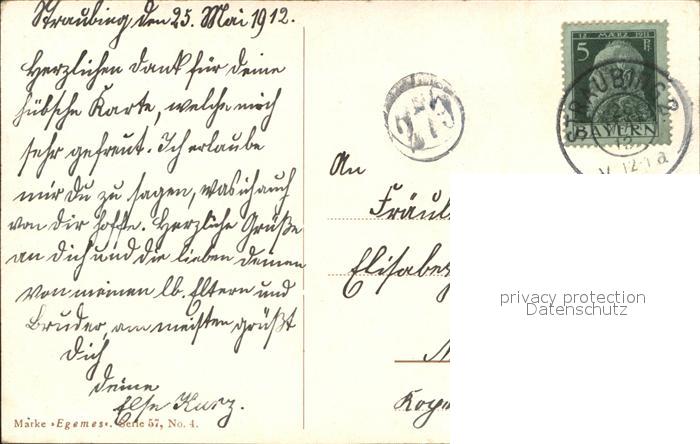 Straubing den 25. Mai 1912.
Herzlichen Dank für deine
hübsche Karte, welche mich
sehr gefreut. Ich erlaube
mir Du zu sagen, was ich auch
von Dir hoffe. Herzliche Grüße
an Dich und die lieben Deinen
von meinen lb. Eltern und
Bruder, am meisten grüßt
Dich
deine
Else Kurz.
Marke »Egemes«. Serie 57, No. 4.
12. MÄRZ 1911
5 Pf
BAYERN
STRAUBING 2
An
Fräul
Elisabe
privacy protection
Datenschutz